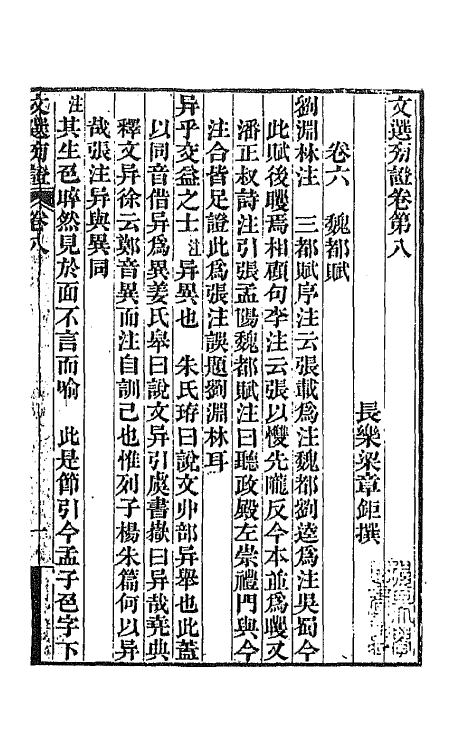 文選旁證卷第八
長樂梁章鉅撰
卷六　魏都賦
劉淵林注　三都賦序注云張載爲注魏都劉逵爲注吳蜀今
此賦後矎焉相顧句李注云張以㦜先隴反今本並爲矎又
潘正叔詩注引張孟陽魏都賦注曰聽政殿左崇禮門與今
注合皆足證此爲張注誤題劉淵林耳
异乎交益之士　注　异異也　朱氏珔曰說文廾部异舉也此蓋
以同音借异爲異姜氏皋曰說文异引虞書嶽曰异哉堯典
釋文异徐云鄭音異而注自訓己也惟列子楊朱篇何以异
哉張注异與異同
注　其生色睟然見於面不言而喻　此是節引今孟子色字下
文選旁證　卷八
一